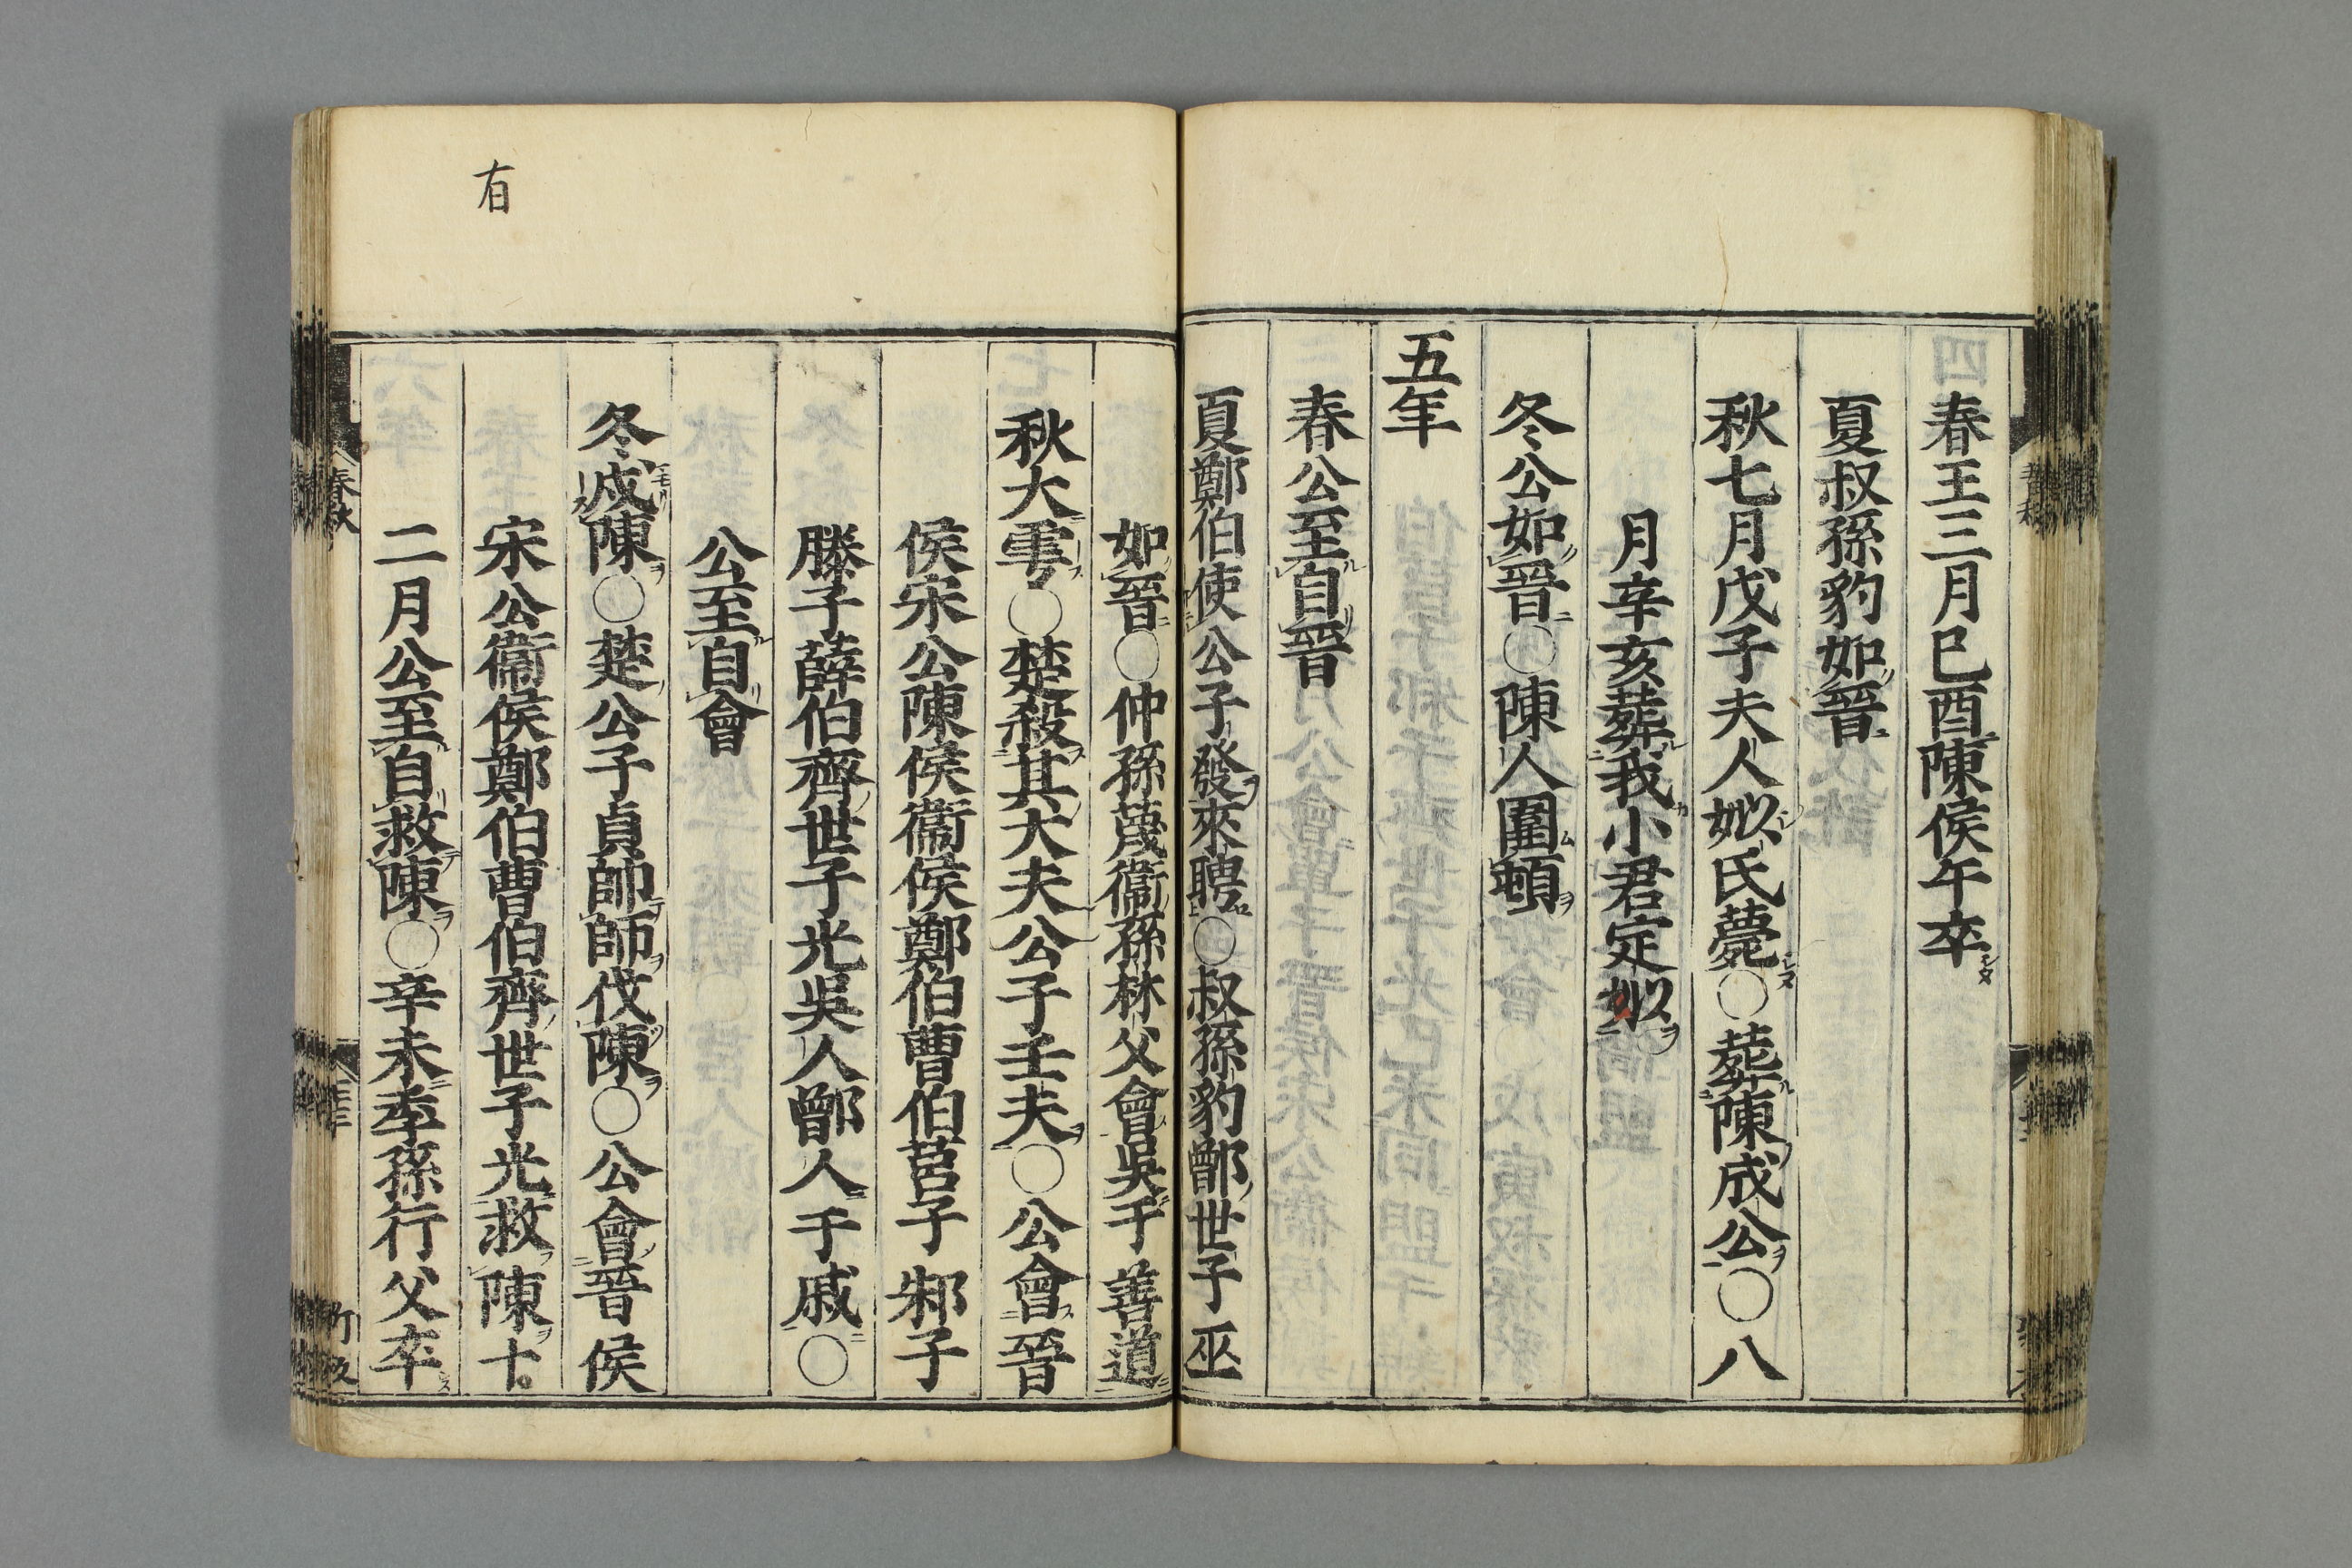 春王三月巳酉陳侯午卒
夏叔孫豹如晉
秋七月戊子夫人姒氏薨○葬陳成公○八
月辛亥葬我小君定姒
冬公如晉○陳人圍頓
五年
春公至自晉
夏鄭伯使公子發來聘○叔孫豹鄫世子巫
如晉○仲孫蔑衞孫林父會吳于善道
秋大雩○楚殺其大夫公子壬夫○公會晉
侯宋公陳侯衞侯鄭伯曹伯莒子邾子
滕子薛伯齊世子光吳人鄫人于戚○
公至自會
冬戍陳○楚公子貞帥師伐陳○公會晉侯
宋公衞侯鄭伯曹伯齊世子光救陳十
有
二月公至自救陳○辛未季孫行父卒
春秋